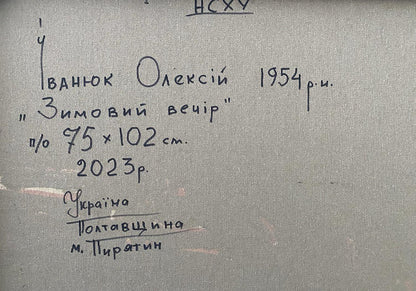 НСХУ
Іванюк Олексій 1954 р.н.
„Зимовий вечір"
п/о 75 × 102 см.
2023р.
Україна
Полтавщина
м. Пирятин